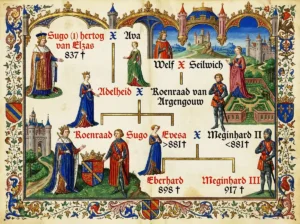 Sugo (1) hertog X Ava
van Elzas
837 †
Welf X Heilwich
Adelheid X Koenraad van
Argengouw
Koenraad Sugo Evesa X Meginhard II
>881† <881†
Eberhard Meginhard III
898 † 917 †